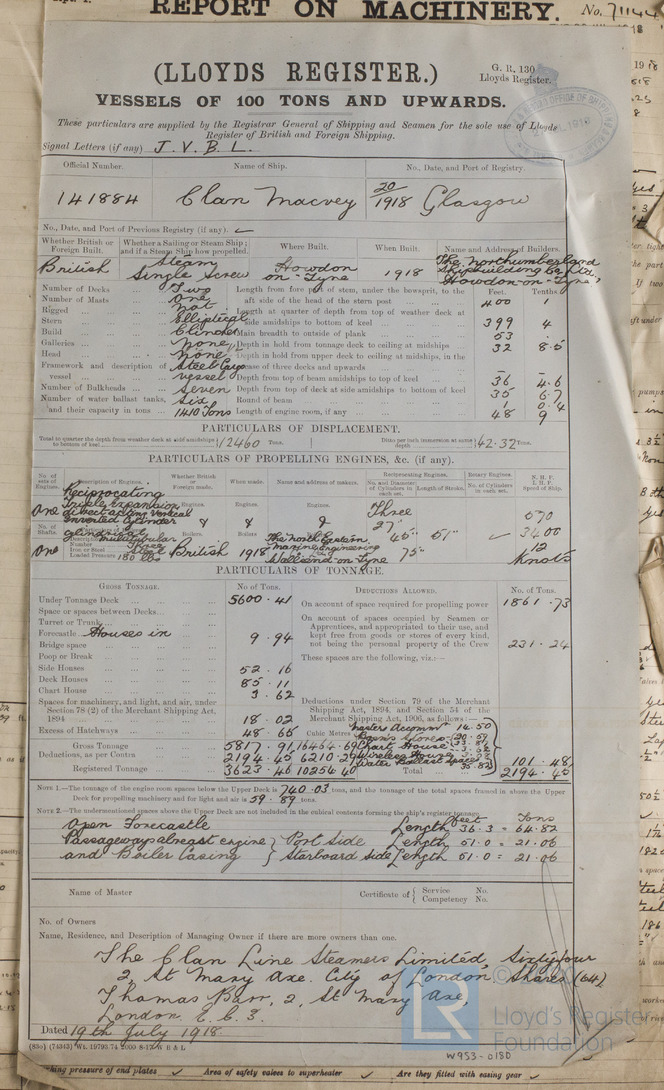 REPORT ON MACHINERY. No. 71144
(LLOYDS REGISTER.)
G. R. 130
Lloyds Register.
VESSELS OF 100 TONS AND UPWARDS.
These particulars are supplied by the Registrar General of Shipping and Seamen for the sole use of Lloyds
Register of British and Foreign Shipping.
Signal Letters (if any) J. V. B. L.
Official Number. Name of Ship. No., Date, and Port of Registry.
141884 Clan Macvey 20/1918 Glasgow
No., Date, and Port of Previous Registry (if any).
Whether British or Foreign Built. Whether a Sailing or Steam Ship; and if a Steam Ship how propelled. Where Built. When Built. Name and Address of Builders.
British Steam Single Screw Howdon on-Tyne 1918 The Northumberland Shipbuilding Co Ltd, Howdon-on-Tyne
Feet. Tenths.
Number of Decks Two Length from fore part of stem, under the bowsprit, to the
Number of Masts One aft side of the head of the stern post 400
Rigged not Length at quarter of depth from top of weather deck at
Stern Elliptical side amidships to bottom of keel 399 4
Build Clincher Main breadth to outside of plank 53
Galleries none Depth in hold from tonnage deck to ceiling at midships 32 8.5
Head none Depth in hold from upper deck to ceiling at midships, in the
Framework and description of Steel Cargo case of three decks and upwards
vessel vessel Depth from top of beam amidships to top of keel 36 4.6
Number of Bulkheads Seven Depth from top of deck at side amidships to bottom of keel 35 6.7
Number of water ballast tanks, Six Round of beam 1 0.4
and their capacity in tons 1410 Tons Length of engine room, if any 48 9
PARTICULARS OF DISPLACEMENT.
Total to quarter the depth from weather deck at side amidships to bottom of keel 12460 Tons. Ditto per inch immersion at same depth 42.32 Tons.
PARTICULARS OF PROPELLING ENGINES, &c. (if any).
No. of sets of Engines. Description of Engines. Whether British or Foreign made. When made. Name and address of makers. Reciprocating Engines. Rotary Engines. N. H. P. I. H. P. Speed of Ship.
No. and Diameter of Cylinders in each set. Length of Stroke. No. of Cylinders in each set.
One Reciprocating Triple Expansion direct acting vertical inverted Cylinder
Engines. Engines. Engines. Three 27" 45" 51" 75" 570 3400 12 Knots
No. of Shafts. One
Cylindrical Multitubular Steel
Loaded Pressure 180 lbs
Boilers. British Boilers 1918 The North Eastern Marine Engineering Wallsend on Tyne
PARTICULARS OF TONNAGE.
Gross Tonnage. No of Tons. Deductions Allowed. No. of Tons.
Under Tonnage Deck 5600.41 On account of space required for propelling power 1861.73
Space or spaces between Decks
Turret or Trunk
Forecastle Houses in 9.94
On account of spaces occupied by Seamen or Apprentices, and appropriated to their use, and kept free from goods or stores of every kind, not being the personal property of the Crew 231.24
Bridge space
Poop or Break These spaces are the following, viz.:—
Side Houses 52.16
Deck Houses 85.11
Chart House 3.62
Spaces for machinery, and light, and air, under Section 78 (2) of the Merchant Shipping Act, 1894 18.02
Deductions under Section 79 of the Merchant Shipping Act, 1894, and Section 54 of the Merchant Shipping Act, 1906, as follows:—
Masters Accomm 14.50
Excess of Hatchways 48.65 Cubic Metres
Gross Tonnage 5817.91 16464.69 Chart House 3.62
Deductions, as per Contra 2194.45 6210.29 Wireless House 101.48
Registered Tonnage 3623.46 10254.40 Water Ballast Spaces 35.82 Total 2194.45
Note 1.—The tonnage of the engine room spaces below the Upper Deck is 740.03 tons, and the tonnage of the total spaces framed in above the Upper
Deck for propelling machinery and for light and air is 59.89 tons.
Note 2.—The undermentioned spaces above the Upper Deck are not included in the cubical contents forming the ship's register tonnage.
feet Tons
Open Forecastle Length 36.3 = 64.82
Passageways abreast engine Port Side Length 51.0 = 21.06
and Boiler Casing Starboard side Length 51.0 = 21.06
Name of Master Certificate of Service No. Competency No.
No. of Owners
Name, Residence, and Description of Managing Owner if there are more owners than one.
The Clan Line Steamers Limited, Sixtyfour
2, St Mary Axe. City of London, Shares (64)
Thomas Barr, 2, St Mary Axe,
London E. C. 3.
Dated 19th July 1918
(83o) (74343) Wt. 19790.74 2000 8-17 W E & L
LR
Lloyd's Register
Foundation
W953-0180
working pressure of end plates Area of safety valves to superheater Are they fitted with easing gear